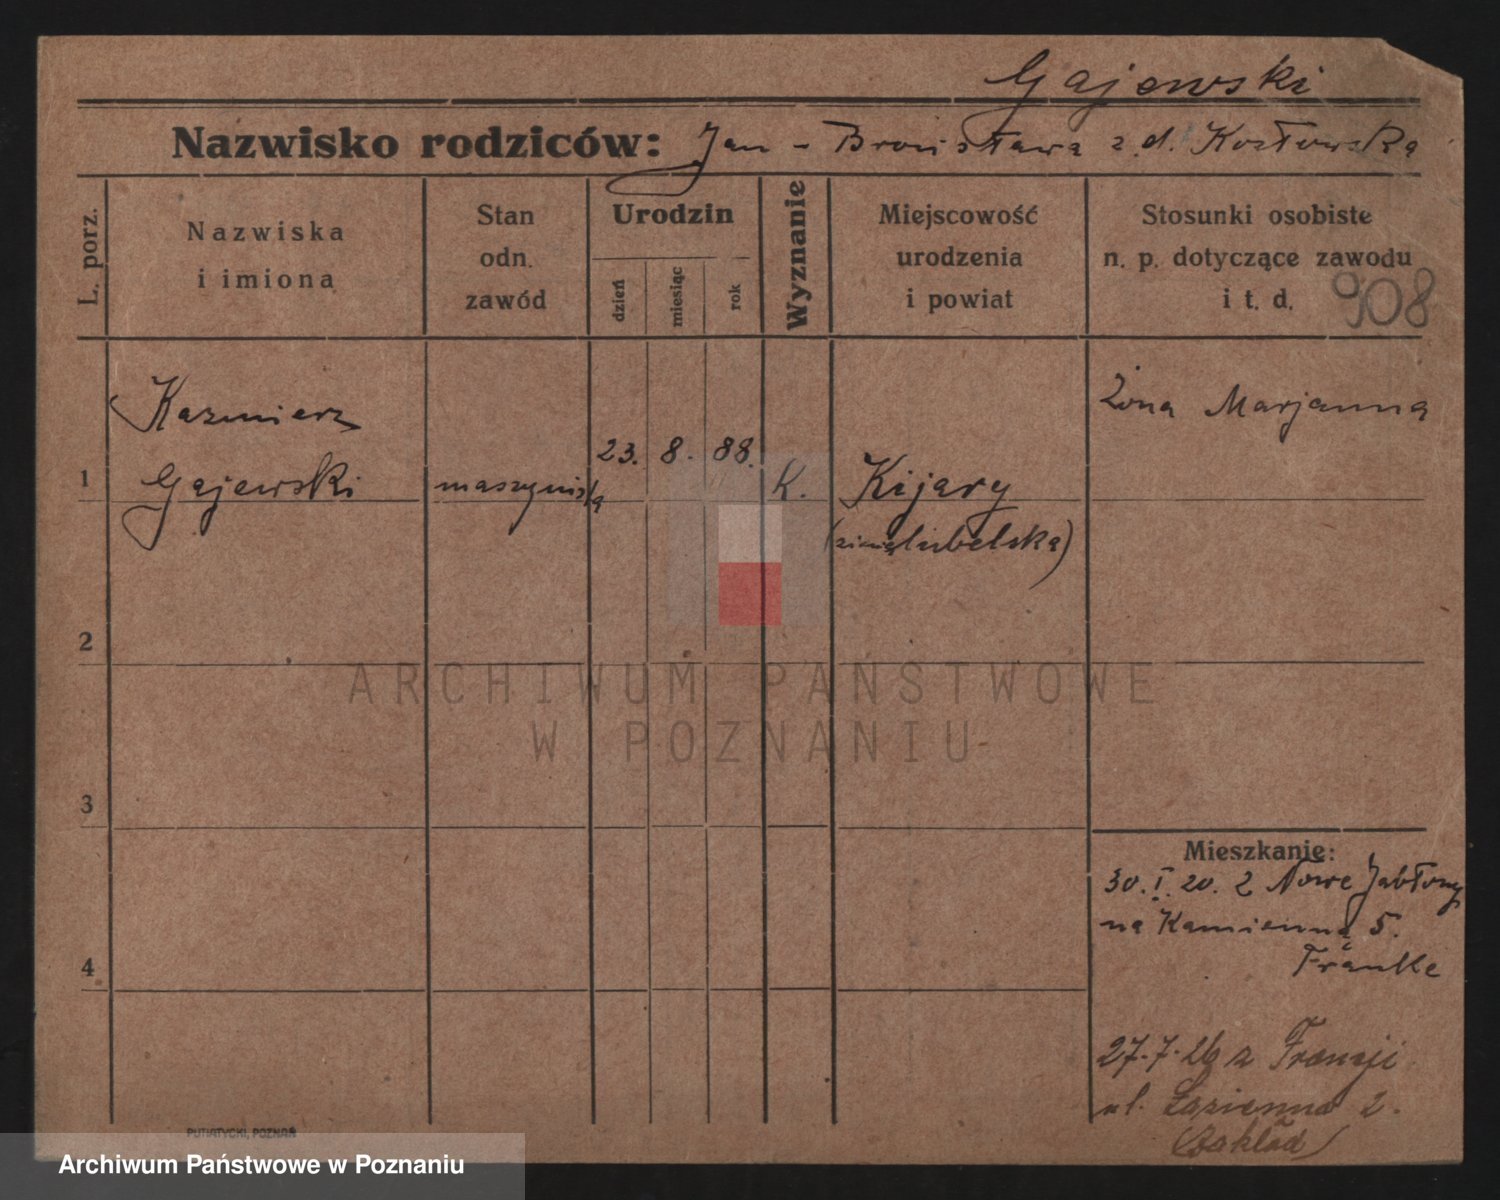 Gajewski
Nazwisko rodziców: Jan - Bronisława z d. Kozłowska
L. porz.
Nazwiska
i imiona
Stan
odn.
zawód
Urodzin
dzień
miesiąc
rok
Wyznanie
Miejscowość
urodzenia
i powiat
Stosunki osobiste
n. p. dotyczące zawodu
i t. d.
908
1
Kazmierz
Gajewski
maszynista
23.
8.
88.
K.
Kijary
(ziemia lubelska)
Żona Marjanna
2
3
4
Mieszkanie:
30. I. 20. z Nowe Jabłony
na Kamienną 5.
Franke
27.7.26 z Francji
ul. Łazienna 2.
(Zakład)
PUTIATYCKI, POZNAŃ
ARCHIWUM PAŃSTWOWE
W POZNANIU
Archiwum Państwowe w Poznaniu